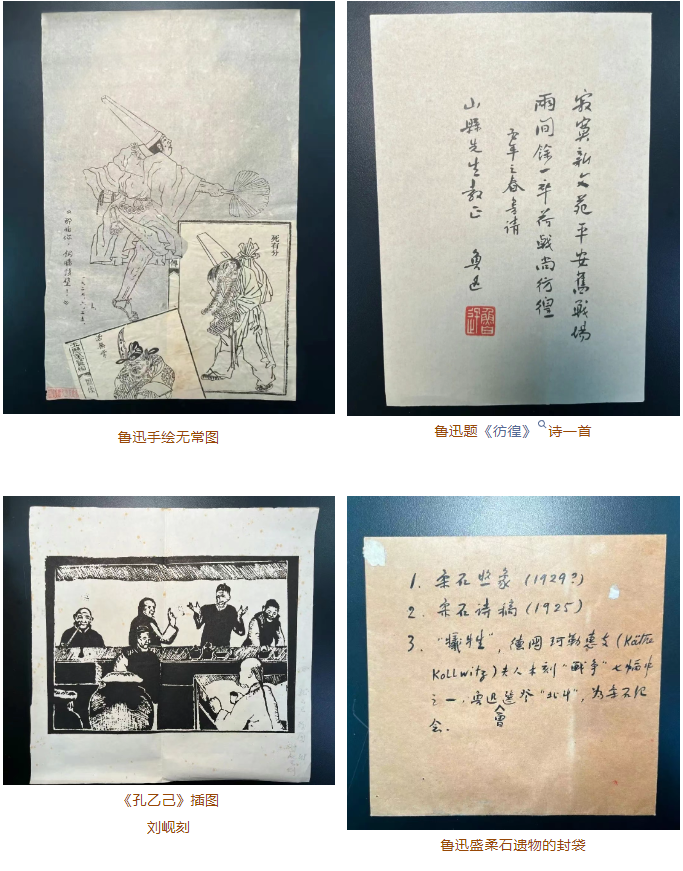 死有分
鲁迅手绘无常图
寂寞新文苑平安舊戰場
兩間餘一卒荷戟尚彷徨
酉年之春書請
山縣先生教正 魯迅
鲁迅题《彷徨》诗一首
《孔乙己》插图
刘岘刻
1. 柔石照象 (1929?)
2. 柔石诗稿 (1925)
3. "犧牲", 德國珂勒惠支 (Käthe
Kollwitz) 夫人木刻 "戰争" 七幅中
之一, 魯迅曾選登 "北斗", 为柔石纪
念.
鲁迅盛柔石遗物的封袋